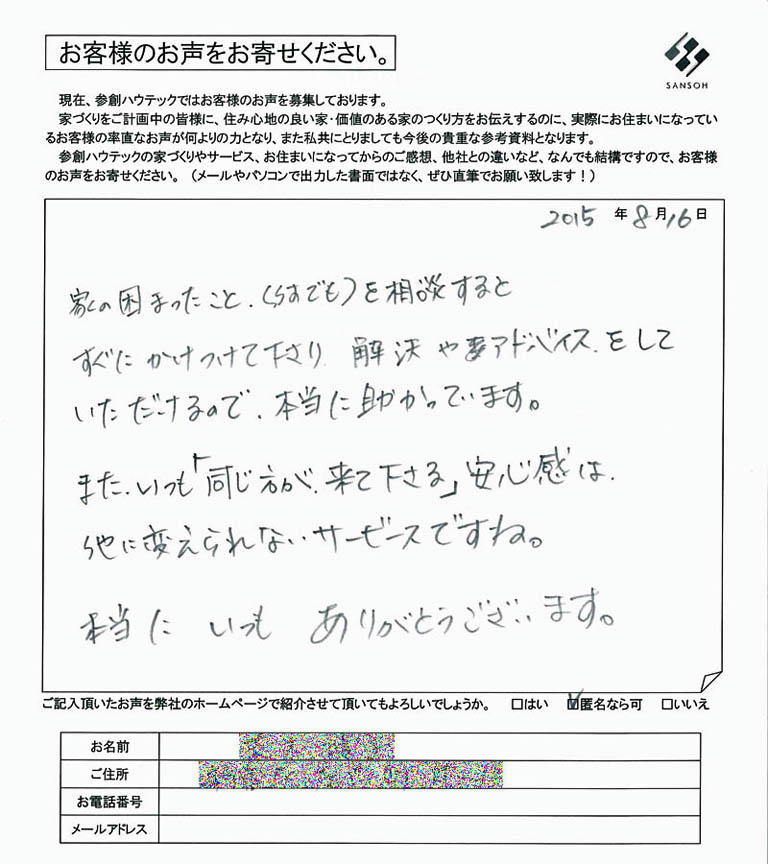 お客様のお声をお寄せください。
SANSOH
現在、参創ハウテックではお客様のお声を募集しております。
家づくりをご計画中の皆様に、住み心地の良い家・価値のある家のつくり方をお伝えするのに、実際にお住まいになってい
るお客様の率直なお声が何よりの力となり、また私共にとりましても今後の貴重な参考資料となります。
参創ハウテックの家づくりやサービス、お住まいになってからのご感想、他社との違いなど、なんでも結構ですので、お客様
のお声をお寄せください。（メールやパソコンで出力した書面ではなく、ぜひ直筆でお願い致します！）
2015 年 8 月 16 日
家の困まったこと、を相談すると
すぐに かけつけて下さり 解決やアドバイス、をして
いただけるので、本当に助かっています。
また、いつも「同じ方が、来て下さる」安心感は、
他に変えられないサービスですね。
本当に いつも ありがとうございます。
ご記入頂いたお声を弊社のホームページで紹介させて頂いてもよろしいでしょうか。 □はい ☑匿名なら可 □いいえ
お名前
ご住所
お電話番号
メールアドレス